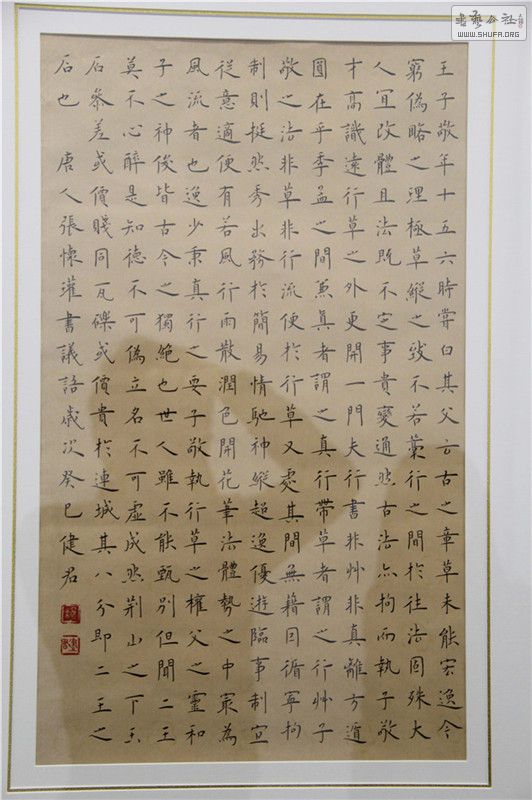 王子敬年十五六時嘗白其父云古之章草未能宏逸今
窮偽略之理極草縱之致不若藁行之間於往法固殊大
人宜改體且法既不定事貴變通然古法亦拘而執子敬
才高識遠行草之外更開一門夫行書非艸非真離方遁
圓在乎季孟之間兼真者謂之真行帶草者謂之行艸子
敬之法非草非行流便於行草又處其間無藉因循寧拘
制則挺然秀出務於簡易情馳神縱超逸優遊臨事制宜
從意適便有若風行雨散潤色開花筆法體勢之中冣為
風流者也逸少秉真行之要子敬執行草之權父之靈和
子之神俊皆古今之獨絕也世人雖不能甄別但聞二王
莫不心醉是知德不可偽立名不可虛成然荊山之下玉
石參差或價賤同瓦礫或價貴於連城其八分即二王之
石也 唐人張懷瓘書議語歲次癸巳健君
書藝公社
WWW.SHUFA.ORG